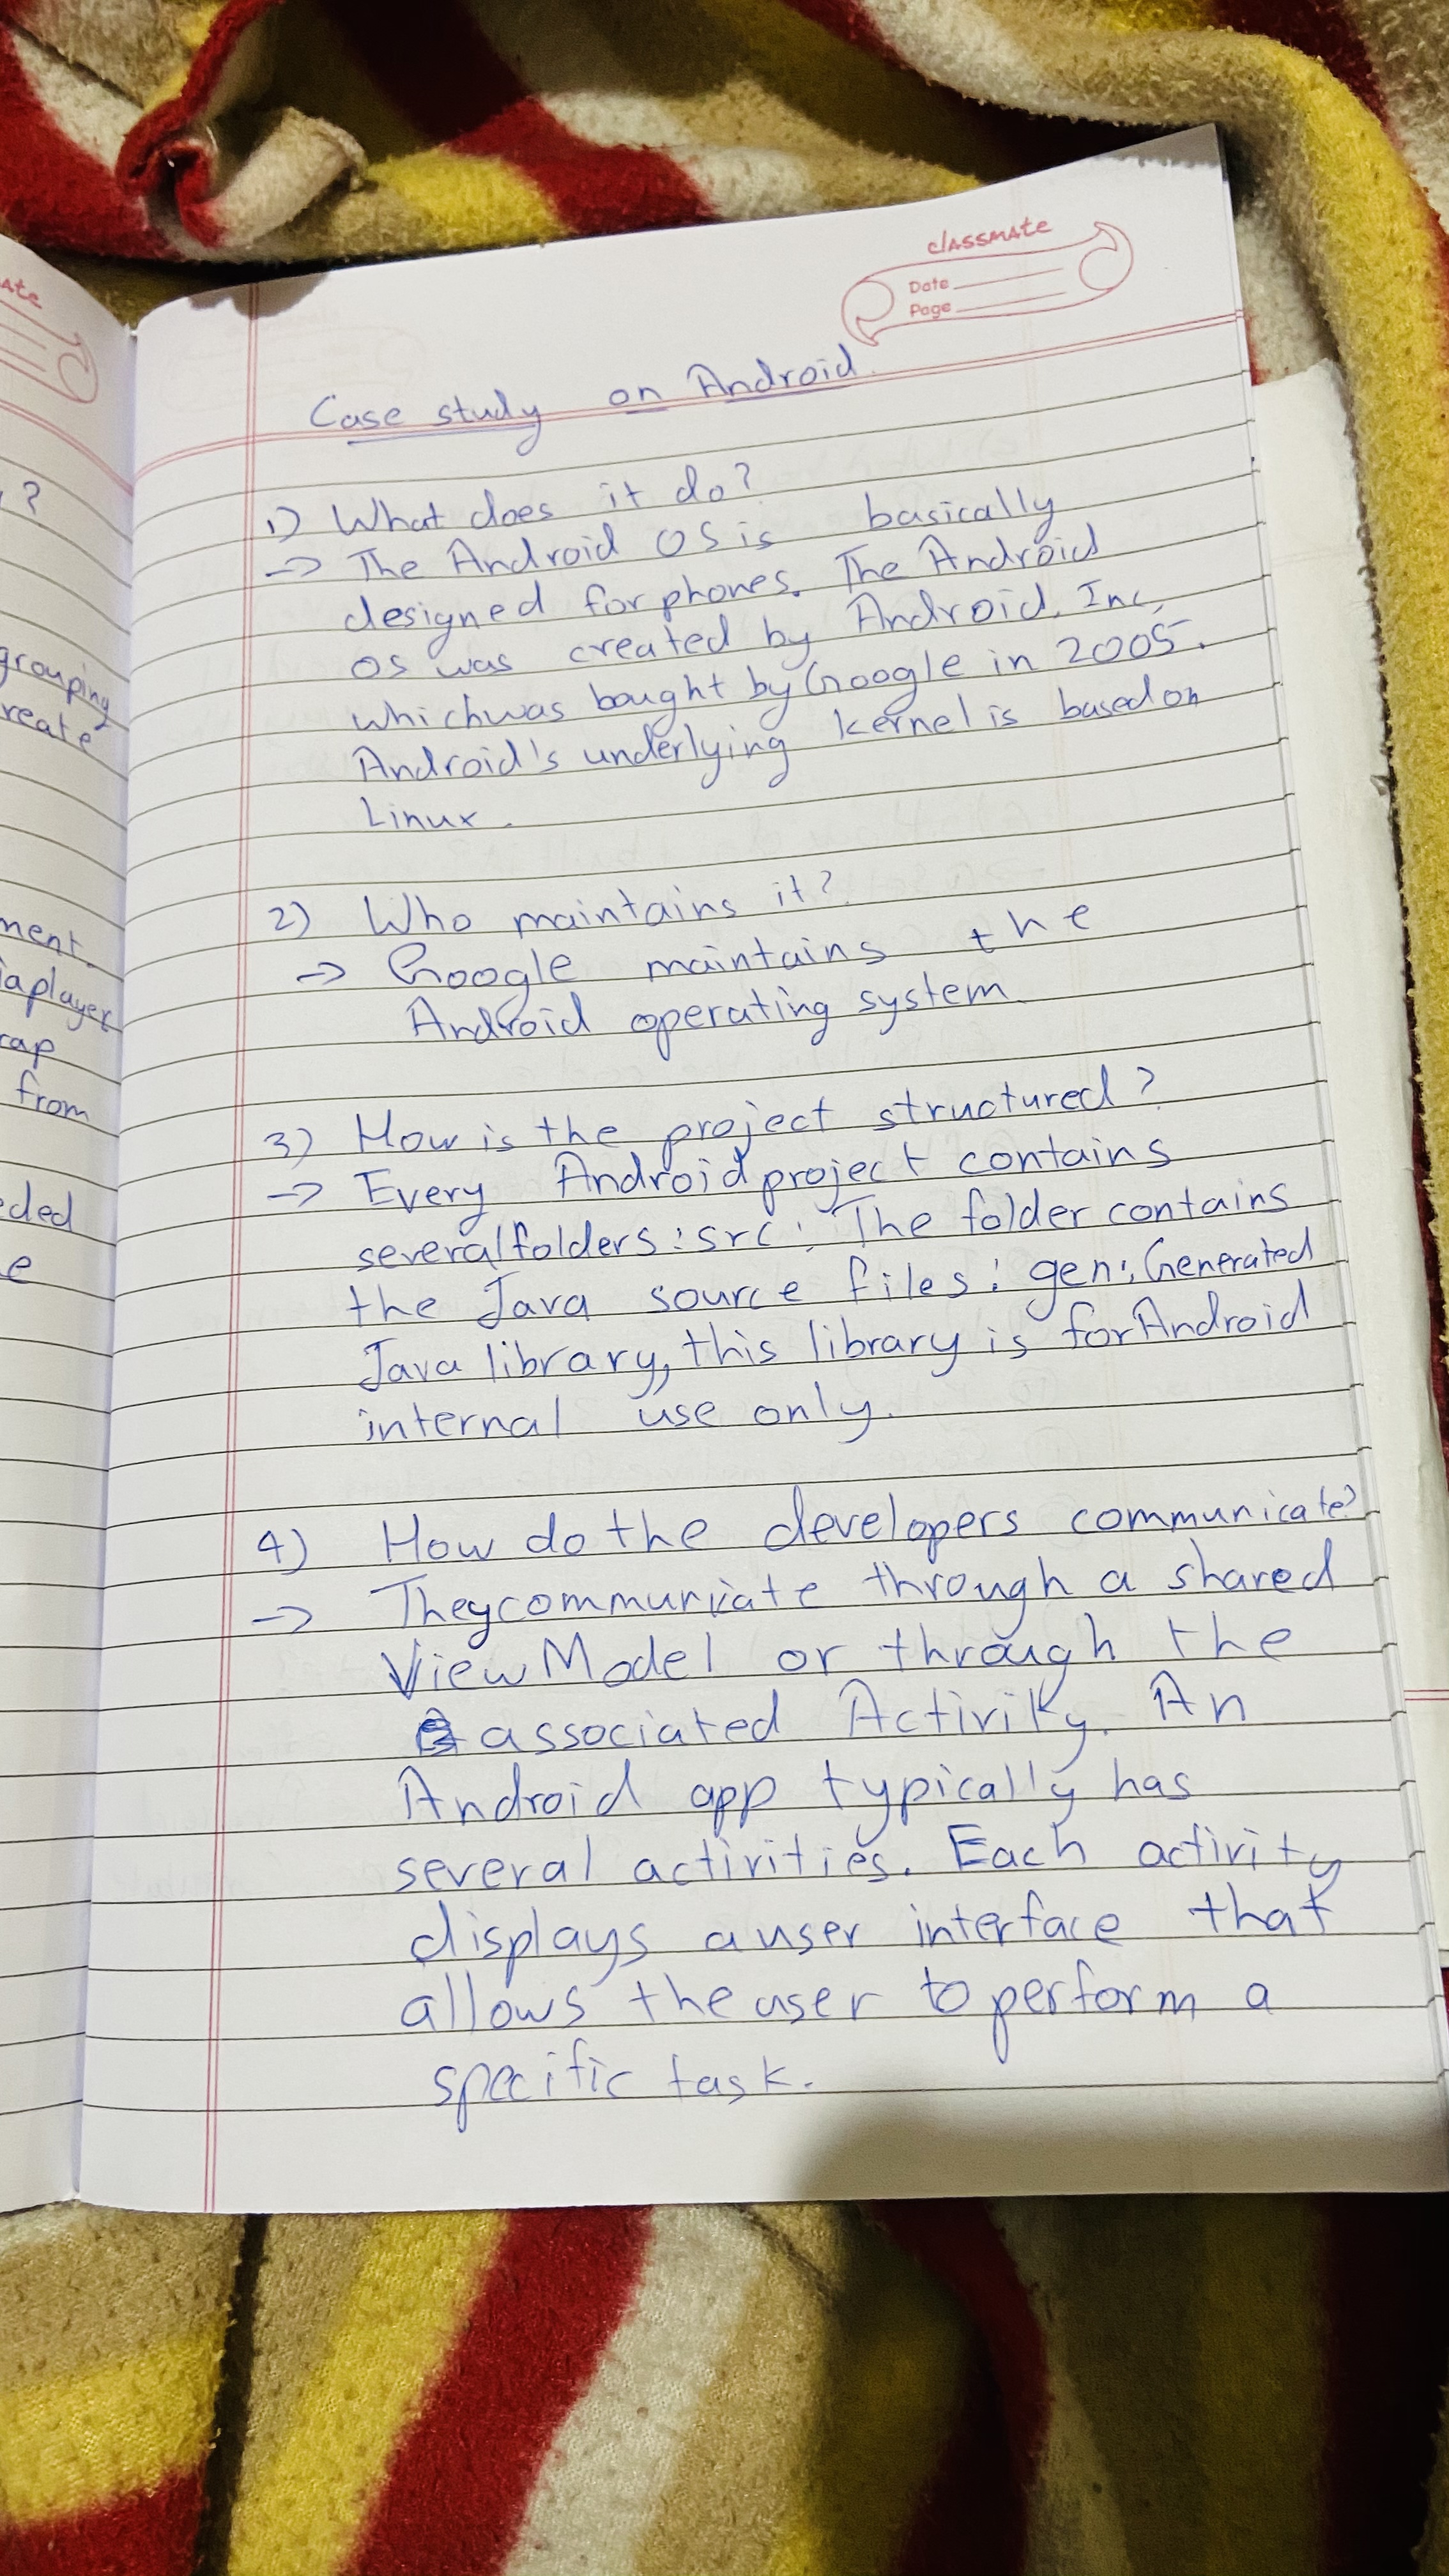 ate
?
grouping
reate
ment.
iaplayer
rap
from
ded
e
classmate
Date
Page
Case study on Android.
1) What does it do?
-> The Android OS is basically
designed for phones. The Android
OS was created by Android, Inc,
which was bought by Google in 2005.
Android's underlying kernel is based on
Linux.
2) Who maintains it?
-> Google maintains the
Android operating system.
3) How is the project structured?
-> Every Android project contains
several folders: src: The folder contains
the Java source files: gen: Generated
Java library, this library is for Android
internal use only.
4) How do the developers communicate?
-> They communicate through a shared
ViewModel or through the
associated Activity. An
Android app typically has
several activities. Each activity
displays a user interface that
allows the user to perform a
specific task.